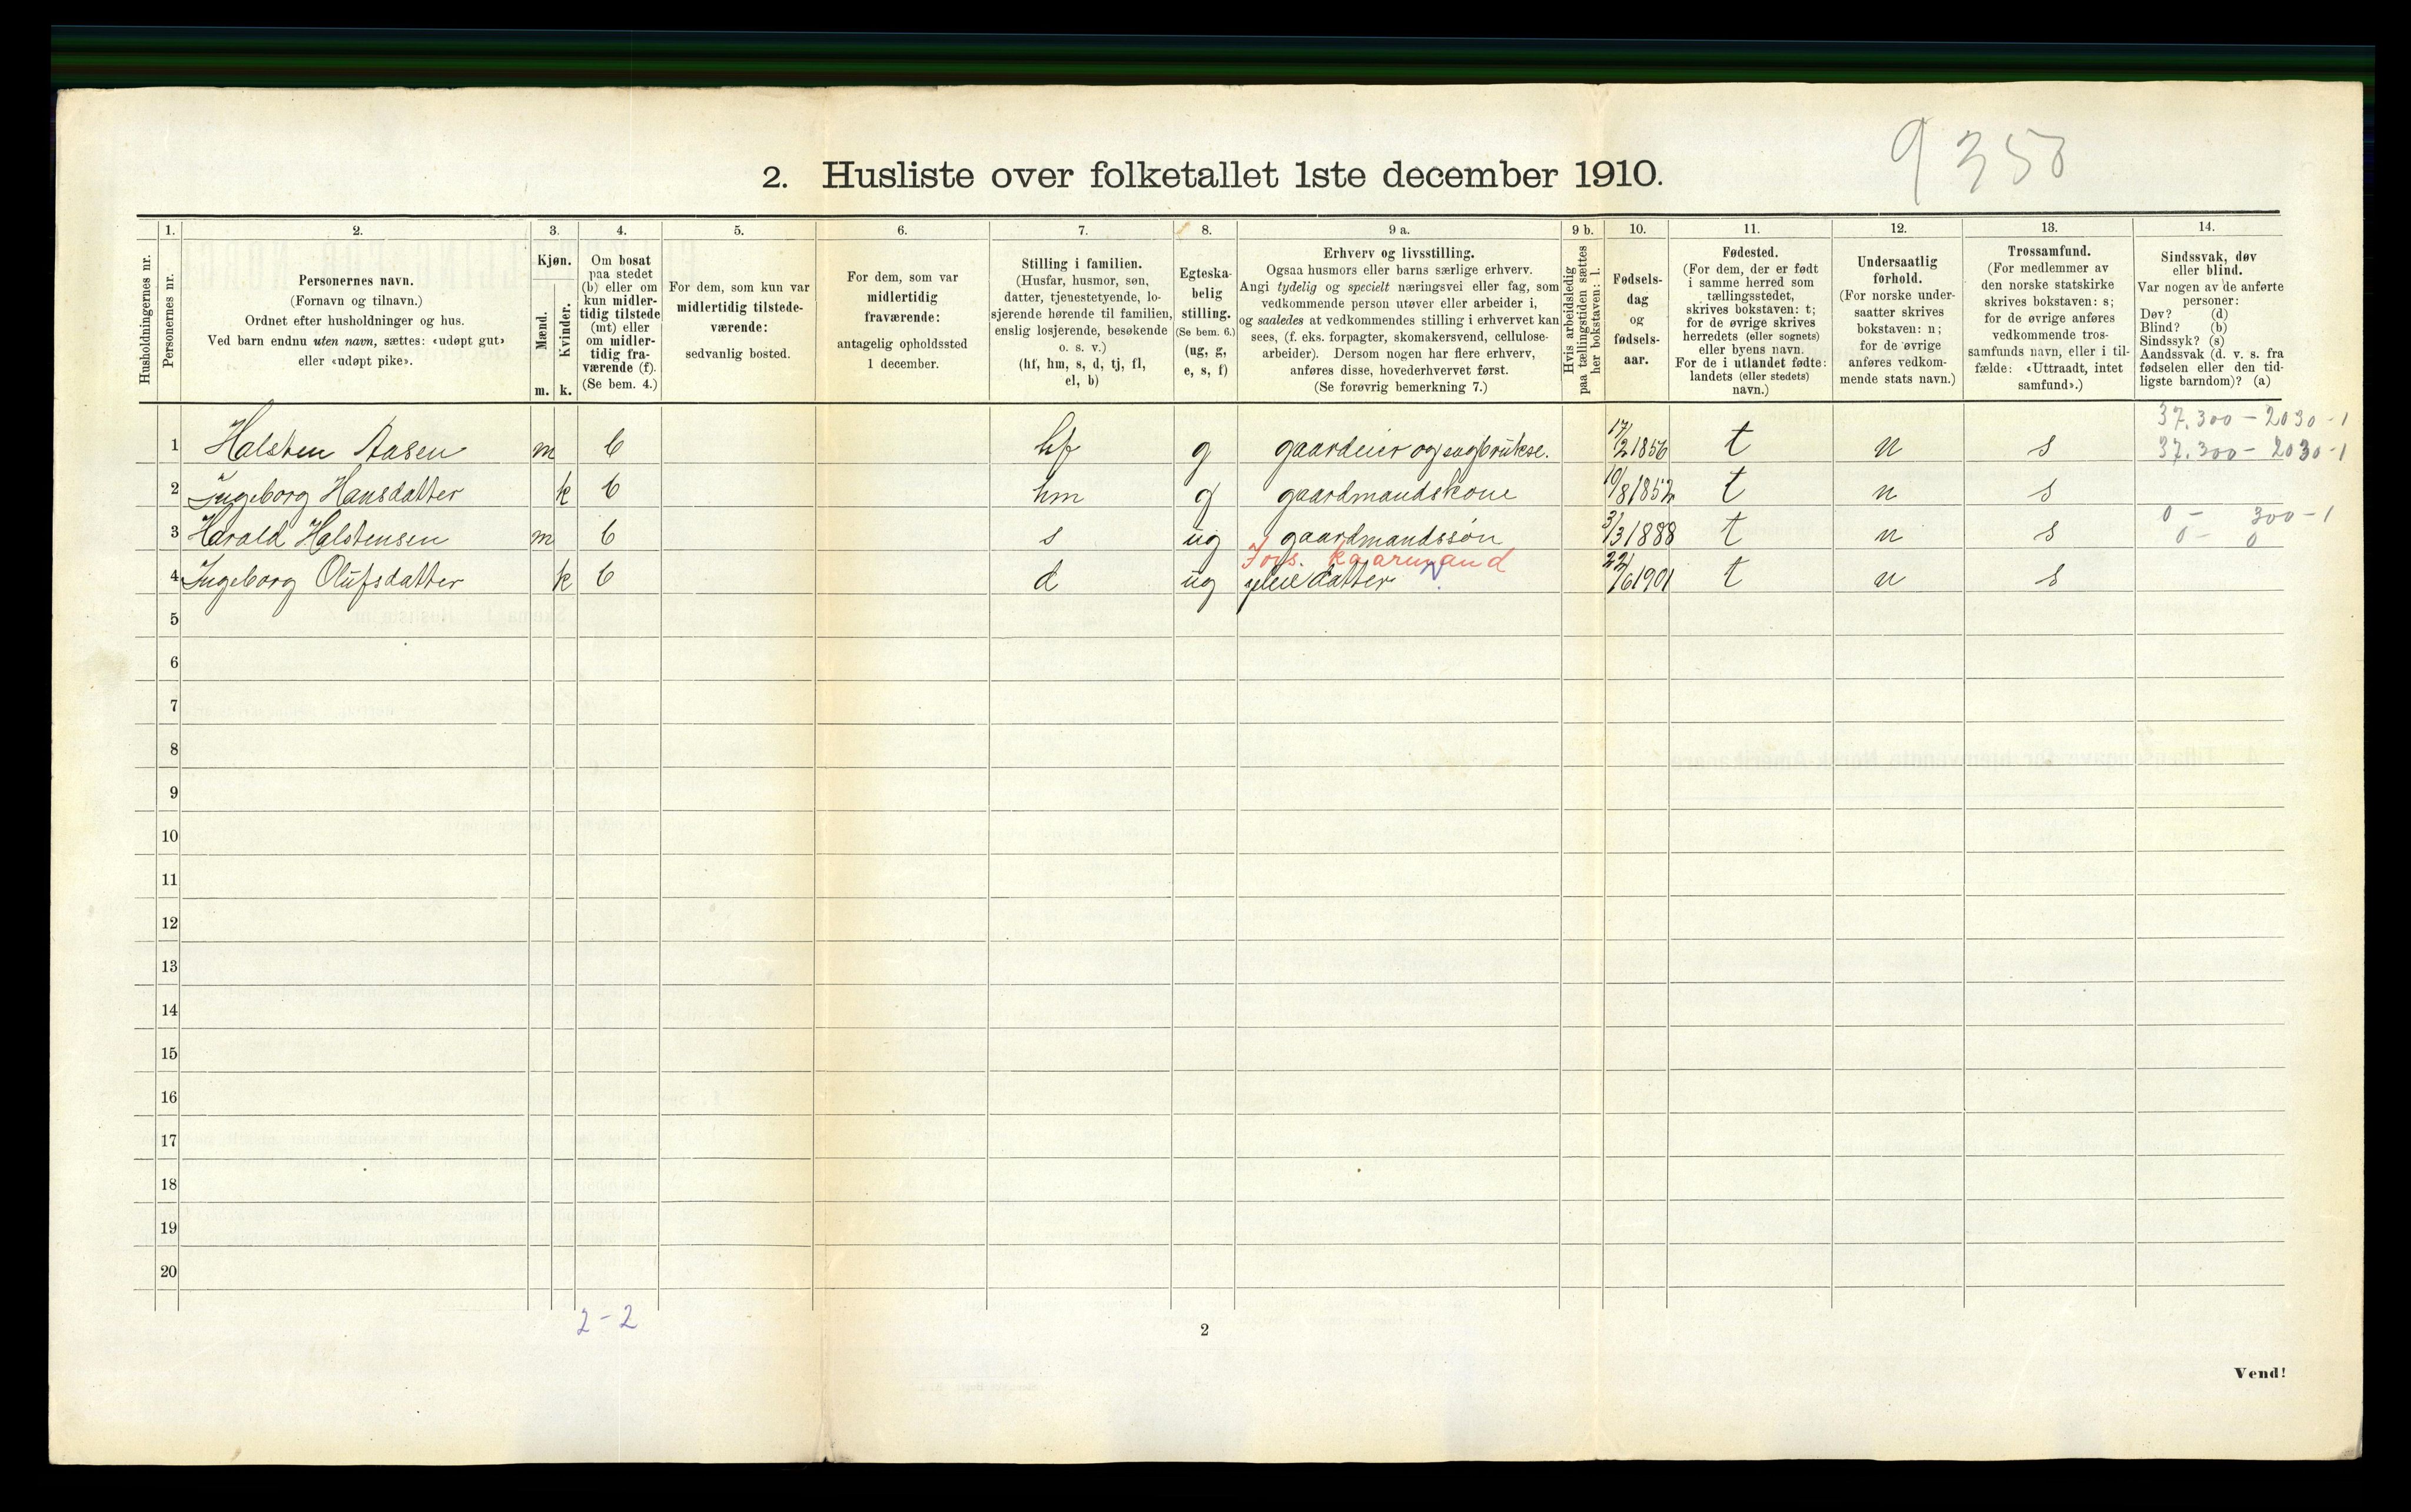 9350
2. Husliste over folketallet 1ste december 1910.
1. 2. 3. 4. 5. 6. 7. 8. 9 a. 9 b. 10. 11. 12. 13. 14.
Husholdningernes nr.
Personernes nr.
Personernes navn.
(Fornavn og tilnavn.)
Ordnet efter husholdninger og hus.
Ved barn endnu uten navn, sættes: «udøpt gut»
eller «udøpt pike».
Kjøn.
Mænd.
Kvinder.
m. k.
Om bosat
paa stedet
(b) eller om
kun midler-
tidig tilstede
(mt) eller
om midler-
tidig fra-
værende (f).
(Se bem. 4.)
For dem, som kun var
midlertidig tilstede-
værende:
sedvanlig bosted.
For dem, som var
midlertidig
fraværende:
antagelig opholdssted
1 december.
Stilling i familien.
(Husfar, husmor, søn,
datter, tjenestetyende, lo-
sjerende hørende til familien,
enslig losjerende, besøkende
o. s. v.)
(hf, hm, s, d, tj, fl,
el, b)
Egteska-
belig
stilling.
(Se bem. 6.)
(ug, g,
e, s, f)
Erhverv og livsstilling.
Ogsaa husmors eller barns særlige erhverv.
Angi tydelig og specielt næringsvei eller fag, som
vedkommende person utøver eller arbeider i,
og saaledes at vedkommendes stilling i erhvervet kan
sees, (f. eks. forpagter, skomakersvend, cellulose-
arbeider). Dersom nogen har flere erhverv,
anføres disse, hovederhvervet først.
(Se forøvrig bemerkning 7.)
Hvis arbeidsledig
paa tællingstiden sættes
her bokstaven: l.
Fødsels-
dag
og
fødsels-
aar.
Fødested.
(For dem, der er født
i samme herred som
tællingsstedet,
skrives bokstaven: t;
for de øvrige skrives
herredets (eller sognets)
eller byens navn.
For de i utlandet fødte:
landets (eller stedets)
navn.)
Undersaatlig
forhold.
(For norske under-
saatter skrives
bokstaven: n;
for de øvrige
anføres vedkom-
mende stats navn.)
Trossamfund.
(For medlemmer av
den norske statskirke
skrives bokstaven: s;
for de øvrige anføres
vedkommende tros-
samfunds navn, eller i til-
fælde: «Uttraadt, intet
samfund».)
Sindssvak, døv
eller blind.
Var nogen av de anførte
personer:
Døv? (d)
Blind? (b)
Sindssyk? (s)
Aandssvak (d. v. s. fra
fødselen eller den tid-
ligste barndom)? (a)
37.300 - 2030 - 1
1 Halsten Aasen m b hf g gaardeier og sagbrukse. 17/2 1856 t n s 37.300 - 2030 - 1
2 Ingeborg Hansdatter k b hm g gaardmandskone 10/8 1852 t n s
0 - 300 - 1
3 Harald Halstensen m b s ug gaardmandssøn 3/3 1888 t n s 0 - 0
Fors. kaarmand
4 Ingeborg Olufsdatter k b d ug pleiedatter 22/6 1901 t n s
5
6
7
8
9
10
11
12
13
14
15
16
17
18
19
20
2-2
2
Vend!